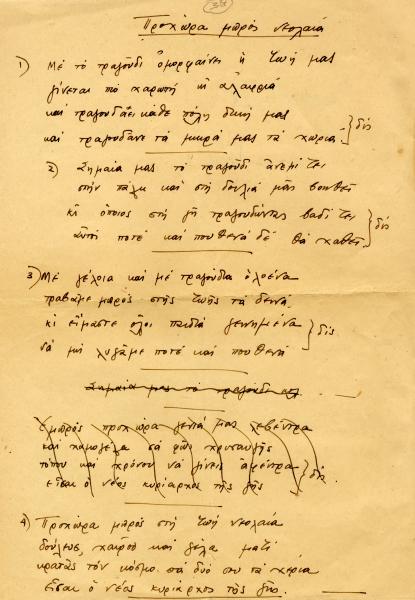 Προχώρα μπρός νεολαία
1) Μέ τό τραγούδι ὀμορφαίνει ἡ ζωή μας
γίνεται πιό χαρωπή κι ἀλαφριά
καί τραγουδάει κάθε πόλη δική μας
καί τραγουδᾶνε τά μικρά μας τά χωριά } δίς
2) Σημαία μας τό τραγούδι ἀνεμίζει
στήν πάλη καί στή δουλιά μᾶς βοηθεῖ
κι ὅποιος στή γῆ τραγουδώντας βαδίζει } δίς
αὐτός ποτέ καί πουθενά δέ θά χαθεῖ
3) Μέ γέλοια καί μέ τραγούδια ὁλοένα
τραβᾶμε μπρός στῆς ζωῆς τά δεινά
κι εἴμαστε ὅλοι παιδιά γεννημένα } δίς
νά μή λυγᾶμε ποτέ καί πουθενά
Σημαία μας τό τραγούδι
Ἐμπρός προχώρα γενιά μας λεβέντρα
καί χαμογέλα σά φῶς χρυσαυγῆς
τόπου καί χρόνου νά γίνεις ἀφέντρα } δίς
εἶσαι ὁ νέος κυρίαρχος τῆς γῆς
4) Προχώρα μπρός στή ζωή νεολαία
δούλευε, χαίρου καί γέλα μαζί
κρατᾶς τόν κόσμο στά δυό σου τά χέρια
εἶσαι ὁ νέος κυρίαρχος τῆς γῆς.